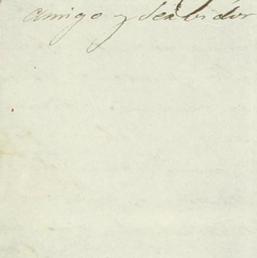 amigo y Servidor